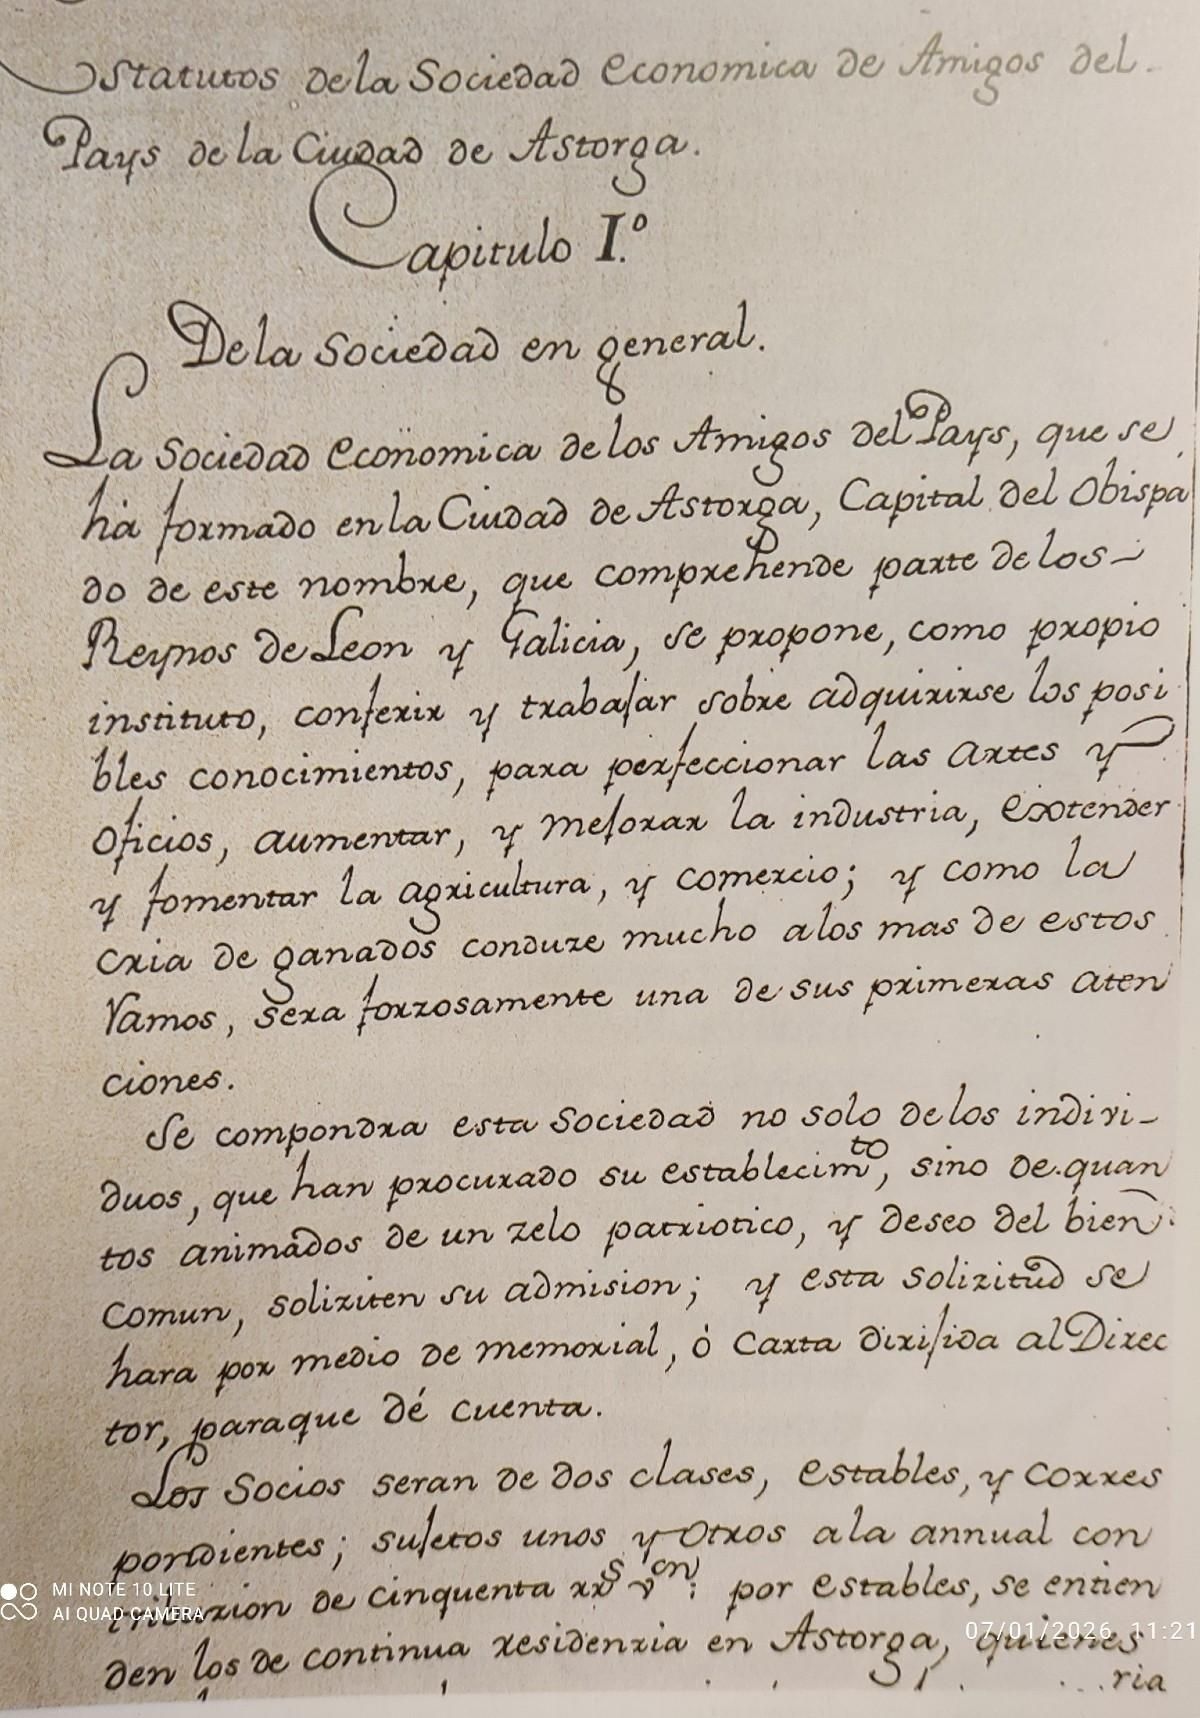 Estatutos de la Sociedad Economica de Amigos del
Pays de la Ciudad de Astorga.
Capitulo I.º
De la Sociedad en general.
La Sociedad Economica de los Amigos del Pays, que se
ha formado en la Ciudad de Astorga, Capital del Obispa
do de este nombre, que comprehende parte de los
Reynos de Leon y Galicia, se propone, como propio
instituto, conferir y trabajar sobre adquirirse los posi
bles conocimientos, para perfeccionar las Artes y
Oficios, aumentar, y mejorar la industria, extender
y fomentar la agricultura, y comercio; y como la
cria de ganados conduze mucho a los mas de estos
Ramos, sera forzosamente una de sus primeras aten
ciones.
Se compondra esta Sociedad no solo de los indivi-
duos, que han procurado su establecimto, sino de quan
tos animados de un zelo patriotico, y deseo del bien
comun, soliziten su admision; y esta solizitud se
hara por medio de memorial, ó Carta dirijida al Direc
tor, paraque dé cuenta.
Los Socios seran de dos clases, estables, y corres
pondientes; sujetos unos y otros a la annual con
tribuzion de cinquenta rrs von: por estables, se entien
den los de continua residenzia en Astorga, quienes
ria
MI NOTE 10 LITE
AI QUAD CAMERA
07/01/2026 11:21